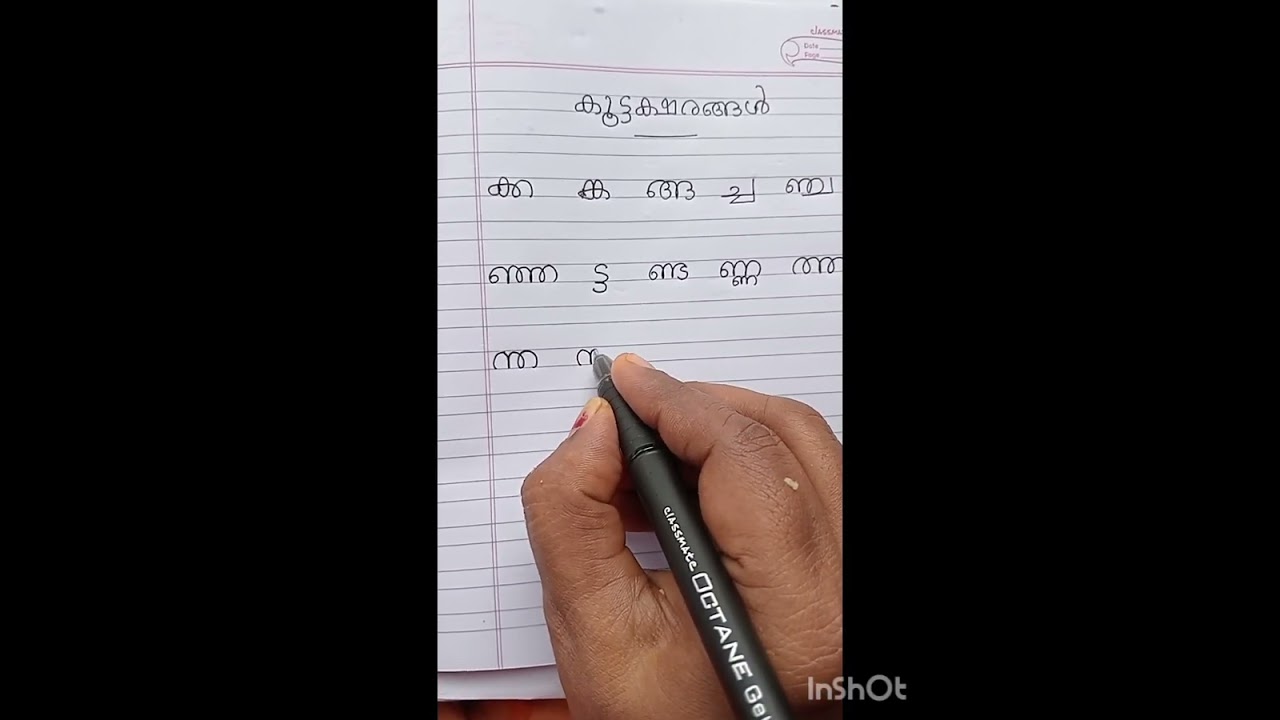 classma
Date
Page
കൂട്ടക്ഷരങ്ങൾ
ക്ക ങ്ക ങ്ങ ച്ച ഞ്ച
ഞ്ഞ ട്ട ണ്ട ണ്ണ ത്ത
ന്ത
classmate OCTANE Gel
InShOt